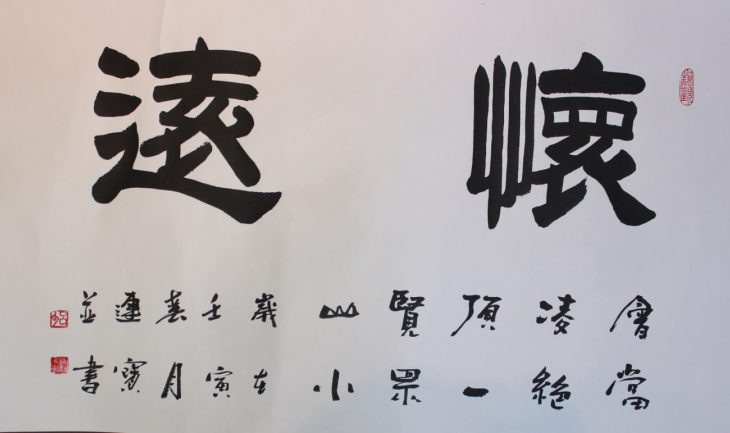 懷遠
會當
凌絕
頂一
覽眾
山小
歲在
壬寅
春月
連寶
並書